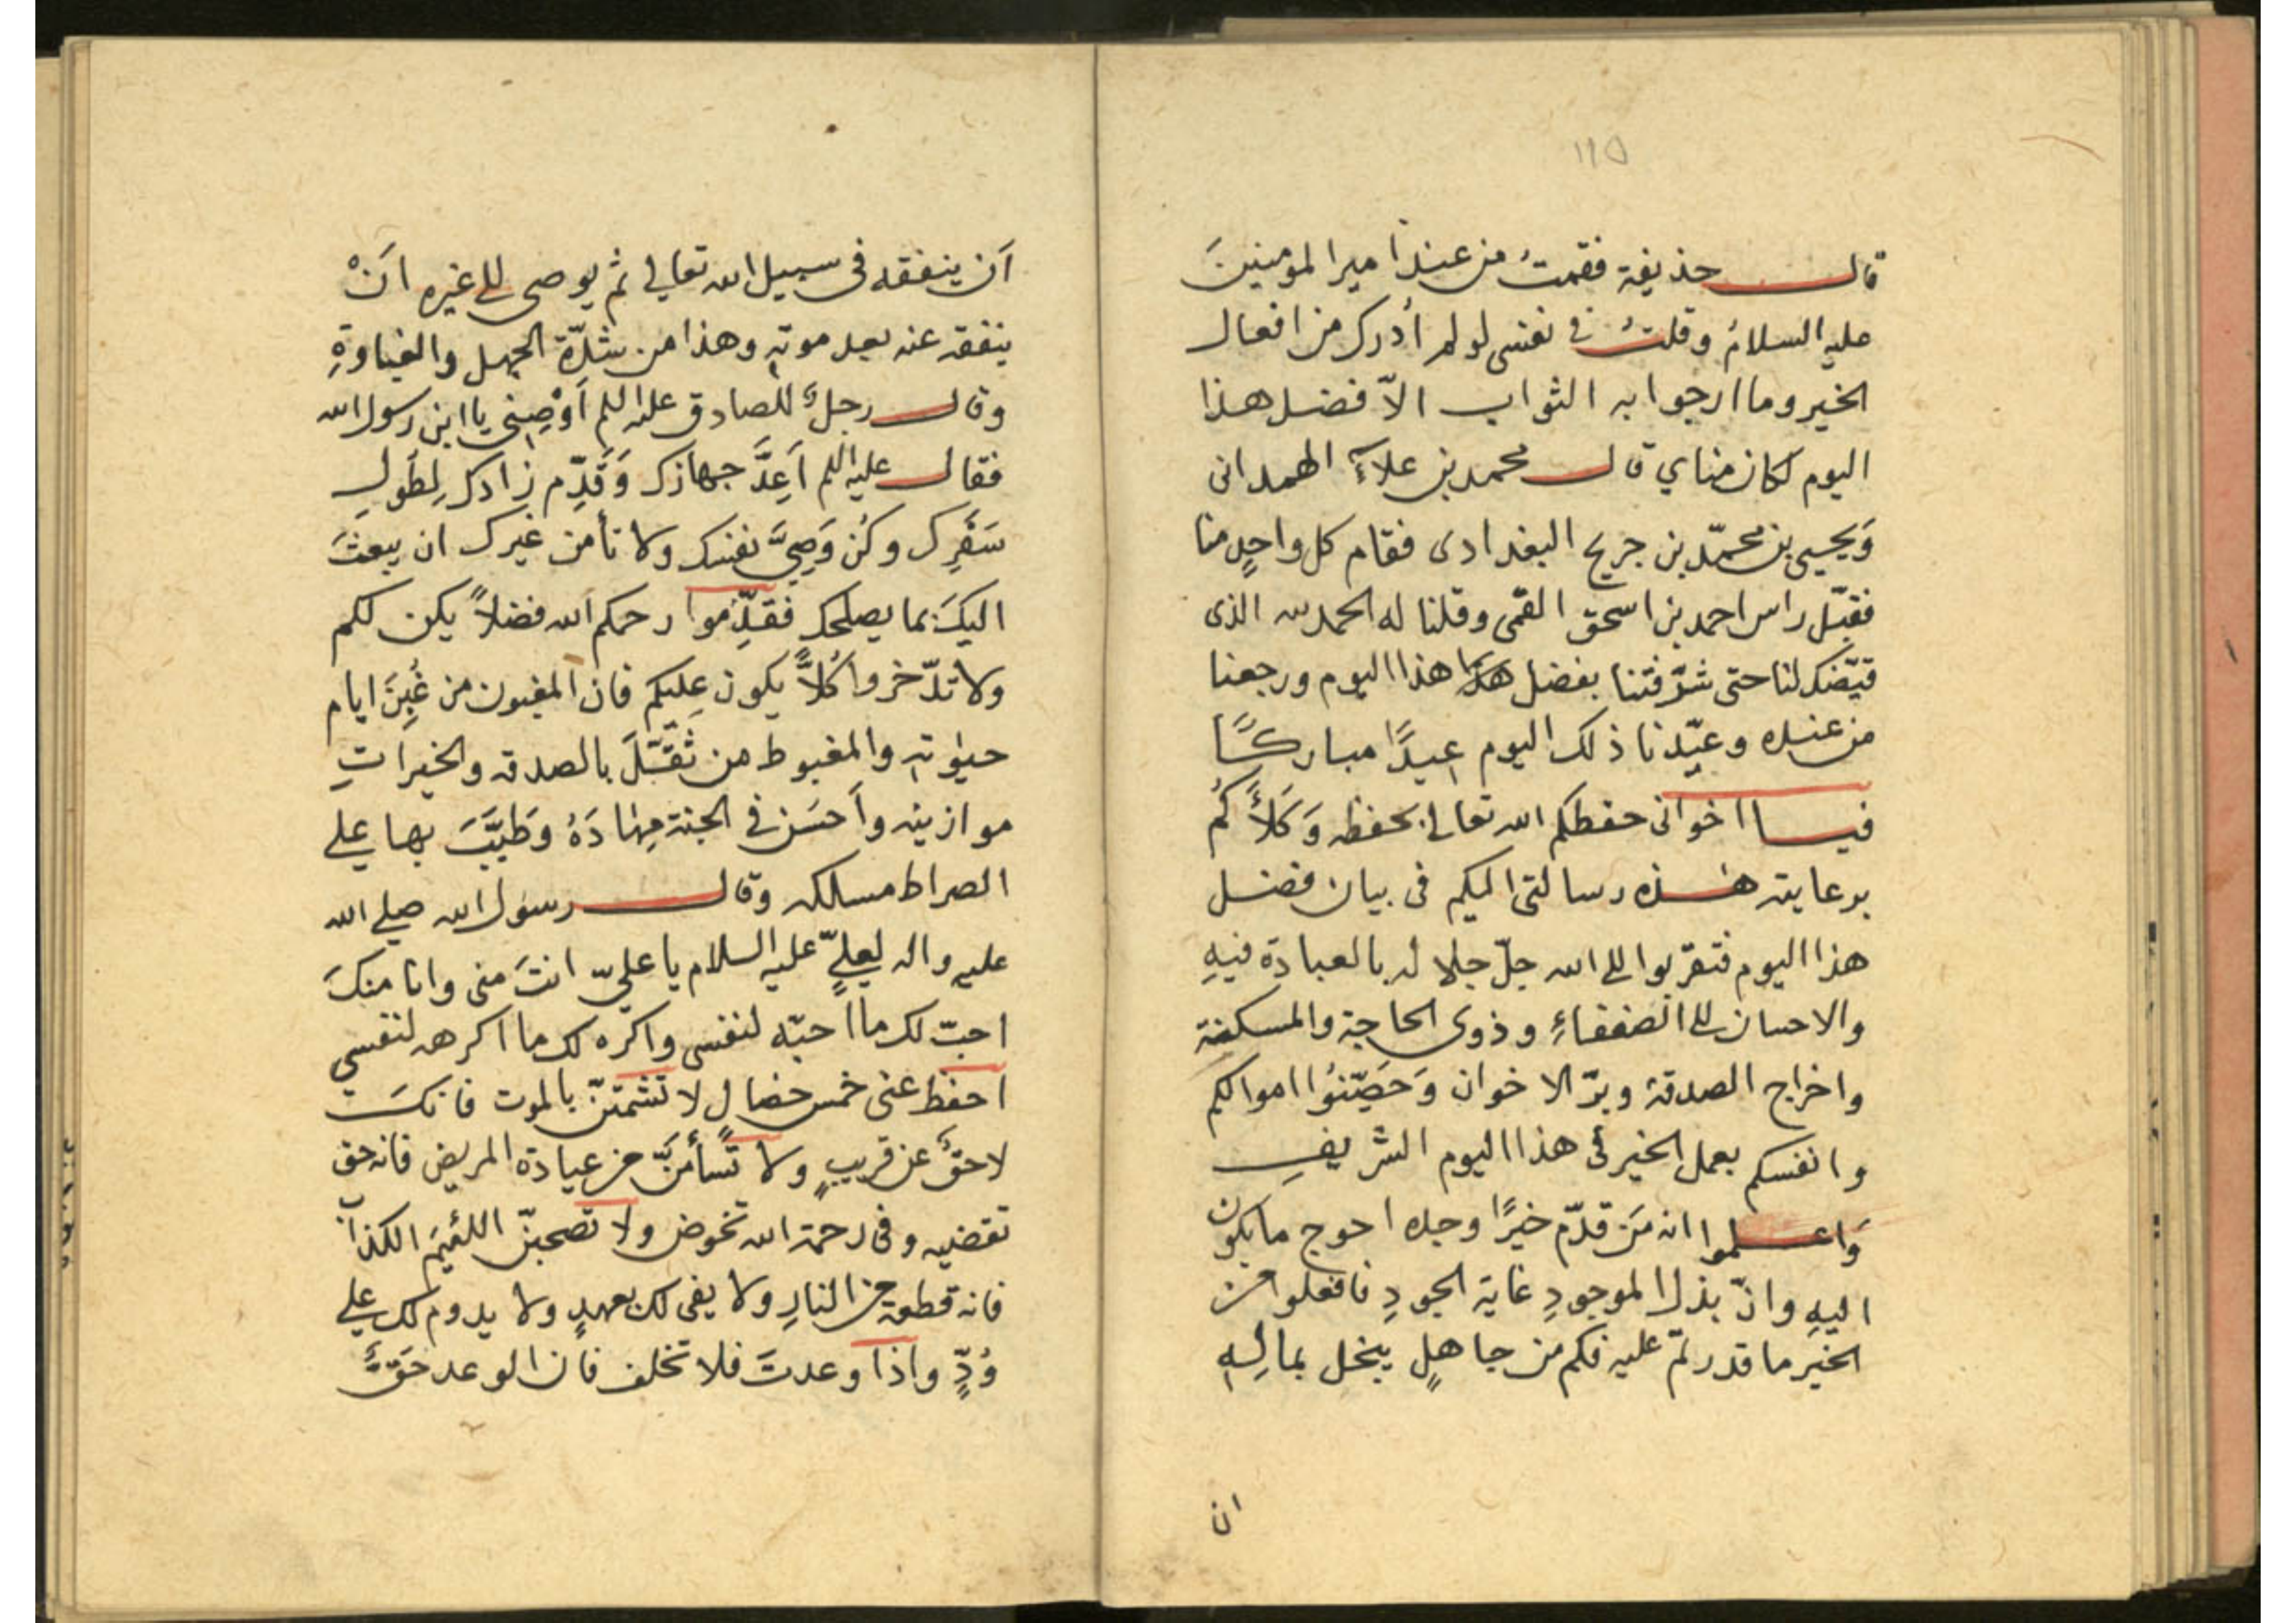 ١١٥
قال حذيفة فقمتُ من عند امير المومنينَ
عليه السلامُ وقلتُ في نفسى لو لم أدرك من افعال
الخير وما ارجوا به الثواب الاّ فضل هذا
اليوم لكان مناي قال محمد بن علاءِ الهمدانى
وَيحيى بن محمّد بن جريح البغدادى فقام كل واحدٍ منا
فقبّل راس احمد بن اسحق القمّى وقلنا له الحمد لله الذى
قيّضك لنا حتى شرّفتنا بفضل هذا اليوم ورجعنا
من عنده وعيّدنا ذلك اليوم عيدًا مباركًا
فيا اخوانى حفظكم الله تعالى بحفظه وَكَلأَكُم
برعايته هذه رسالتى اليكم فى بيان فضل
هذا اليوم فتقرّبوا الى الله جلّ جلاله بالعبادة فيهِ
والاحسان الى الضعفاءِ وذوى الحاجة والمسكنة
واخراج الصدقة وبرّ الاخوان وَحَصِّنوُا اموالكم
وانفسكم بعمل الخير فى هذا اليوم الشريفِ
وَاعلموا انه مَن قدّم خيرًا وجده احوج ما يكون
اليهِ وانّ بذل الموجودِ غاية الجودِ فافعلوا من
الخير ما قدرتم عليه فكم من جاهلٍ يبخل بمالِهِ
ان
اَن ينفقه فى سبيل الله تعالى ثم يوصى الى غيره انَْ
ينفقه عنه بعد موته وهذا من شدّة الجهل والغباوةِ
وقال رجلٌ للصادق عليه اللم اَوْصِنى يا ابن رسول الله
فقال عليه اللم اَعِدَّ جهازك وَقَدِّم زادك لِطُولِ
سَفَرِك وكُن وَصِىَّ نفسك ولا تأمن غيرك ان يبعثَ
اليكَ بما يصلحك فقدِّموا رحمكم الله فضلاً يكن لكم
ولا تدّخروا كُلاًّ يكون عليكم فان المغبون من غُبِنَ ايام
حيٰوته والمغبوط من ثَقَّلَ بالصدقه والخيراتِ
موازينه واَحسَن فى الجنة مِهادَهُ وَطيَّبَ بها على
الصراط مسالكه وقال رسول الله صلى الله
عليه واله لعلىٍّ عليه السلام يا علىّ انتَ منى وانا منكَ
احبّ لك ما احبّه لنفسى واكره لك ما اكرهه لنفسى
احفظ عنى خمس خصالٍ لا تشمتنّ بالموت فانكَ
لاحقٌ عن قريبٍ ولا تَسأمَنَّ من عيادة المريض فانه حق
تقضيه وفى رحمة الله تخوض ولا تصحبنّ اللئيمَ الكذاب
فانه قطعة من النارِ ولا يفى لك بعهدٍ ولا يدوم لك على
وُدٍّ واذا وعدتَ فلا تخلف فان الوعد حَقٌّ